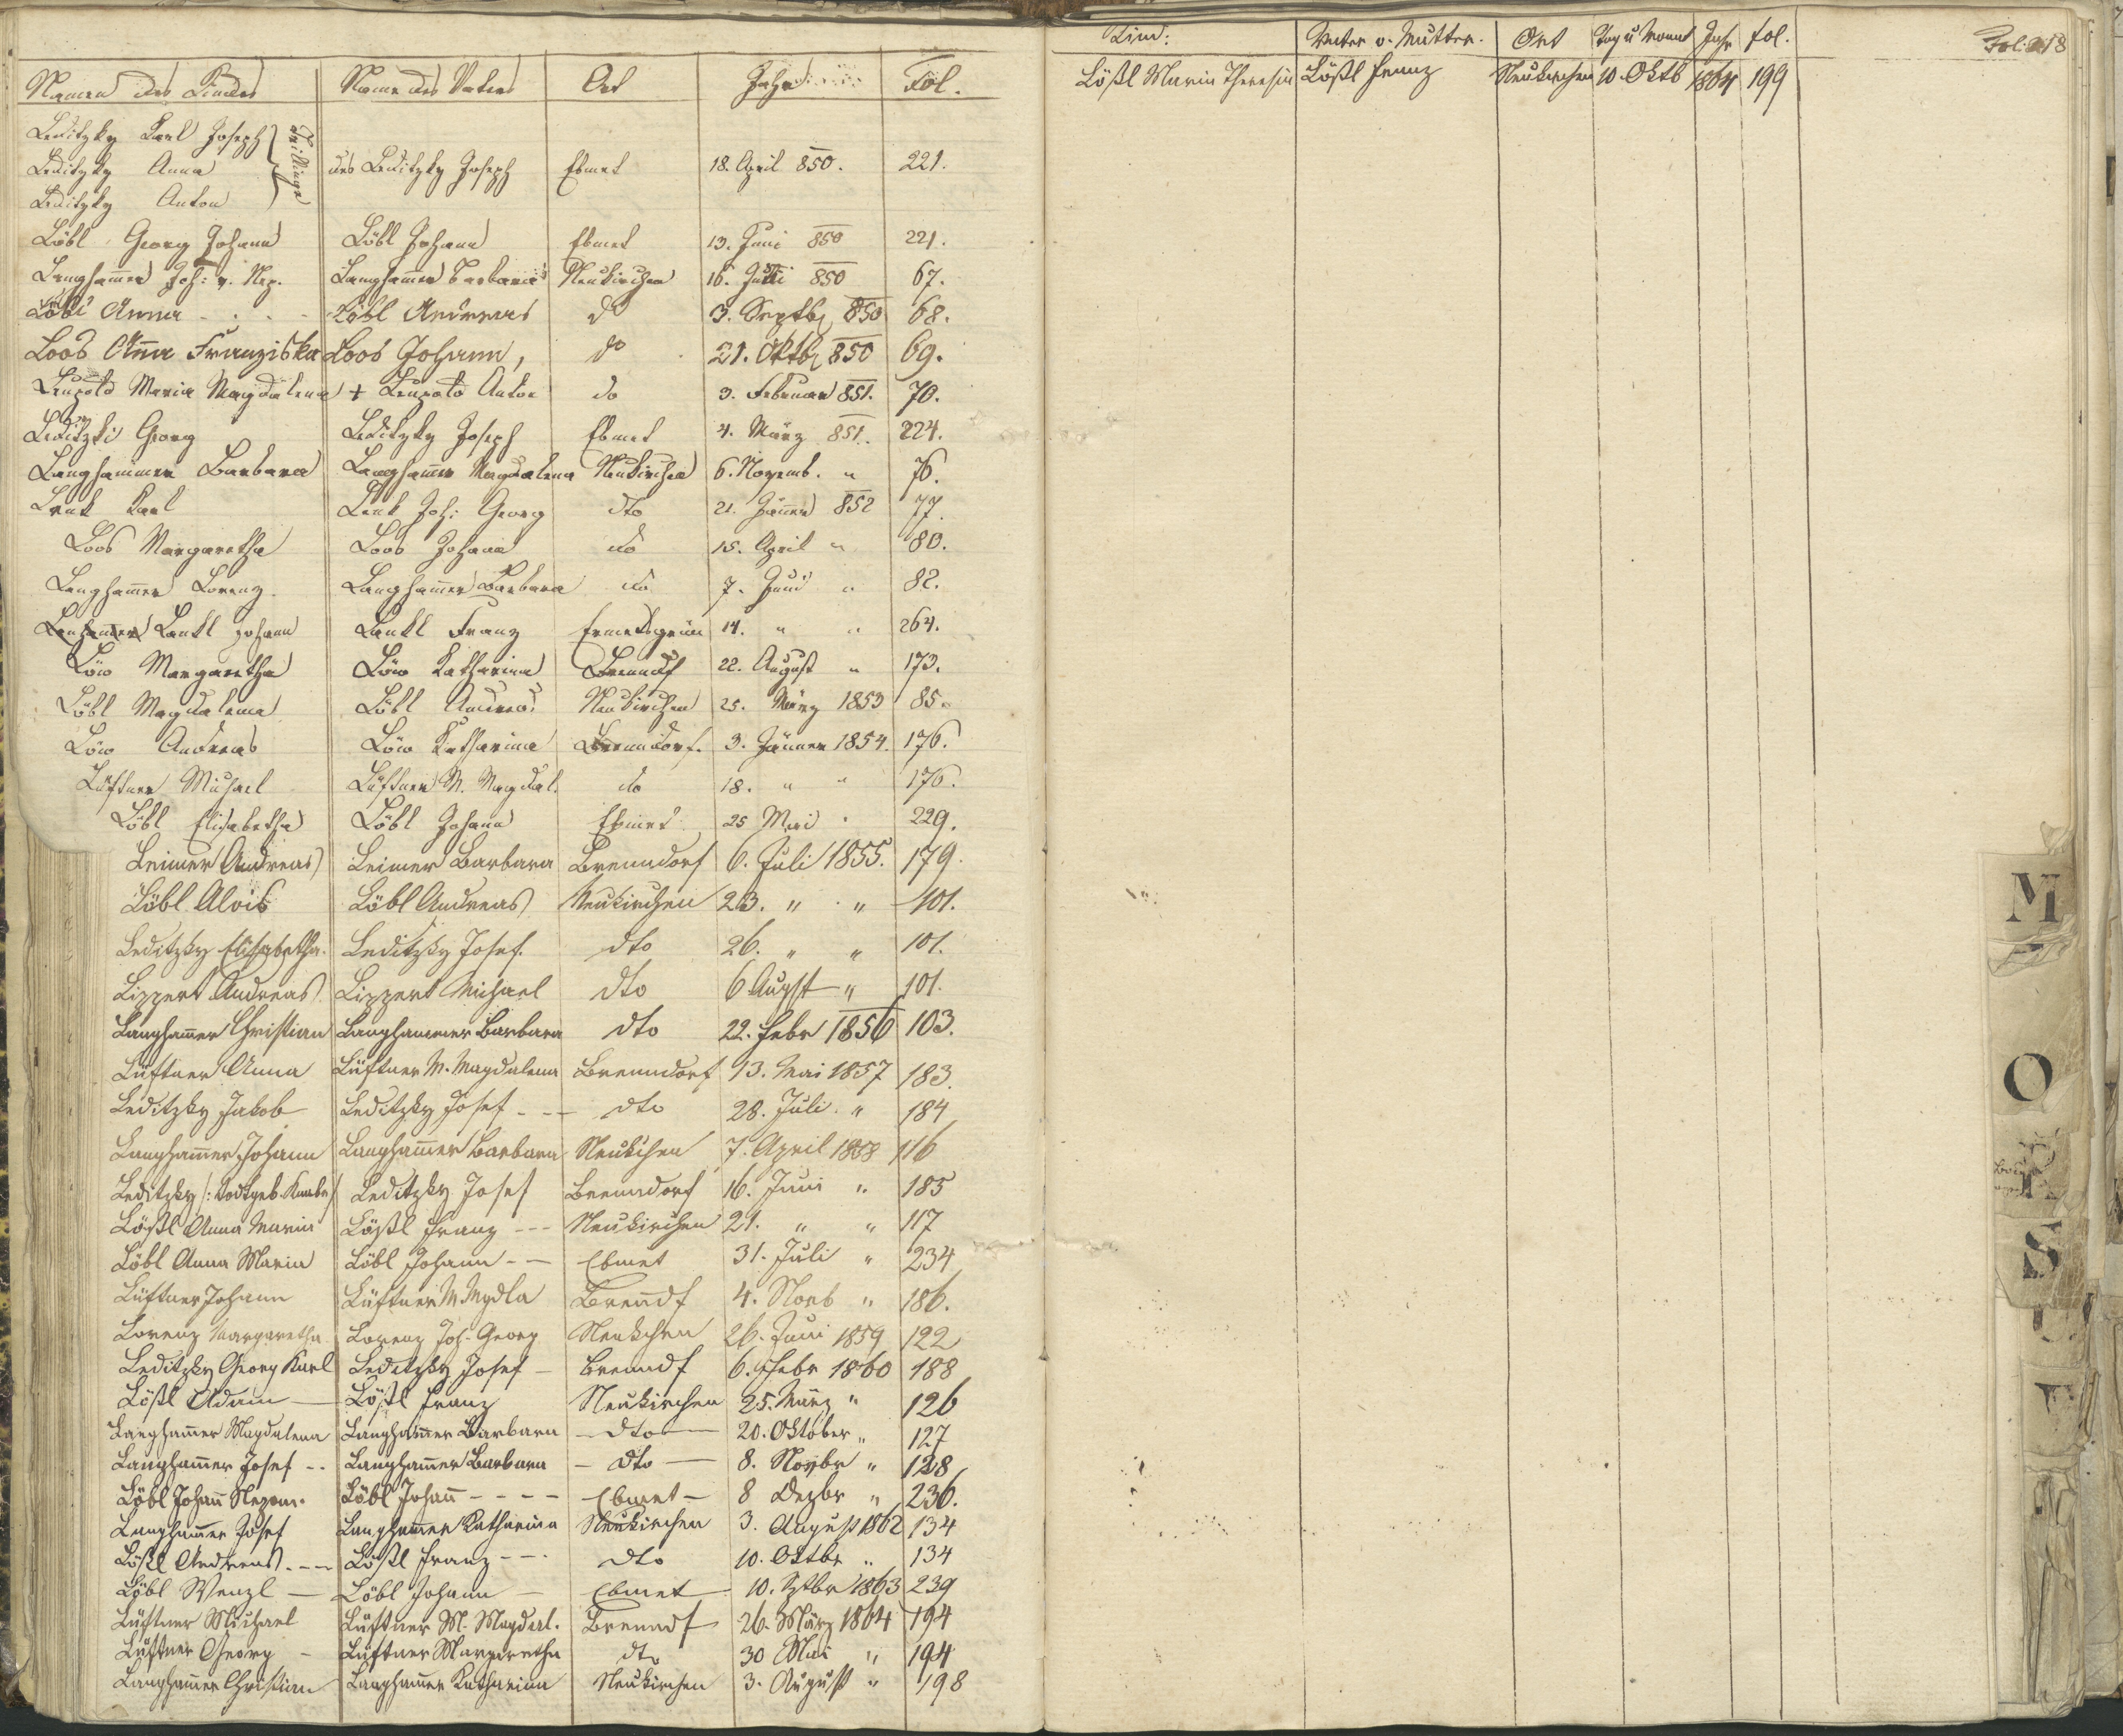 Namen des Kindes Name des Vaters Ort Jahr Fol.
Leditzky Karl Joseph
Leditzky Anna Drillinge des Leditzky Joseph Ebmet 18. April 850. 221.
Leditzky Anton
Löbl Georg Johann Löbl Johann Ebmet 13. Juni 850 221.
Langham̄er Joh: v. Nep. Langham̄er Barbara Neukirchen 16. 850 67.
Löbl Anna Löbl Andreas do 3. Septb 850 68.
Loos Anna Franziska Loos Johann, do 21. Oktb 850 69.
Leupold Maria Magdalena + Leupold Anton do 3. Februar 851. 70.
Leditzki Georg Leditzky Joseph Ebmet 4. März 851. 224.
Langhammer Barbara Langham̄er Magdalena Neukirchen 6. Novemb. " 76.
Lenk Karl Lenk Joh: Georg dto 21. Jänner 852 77
Loos Margaretha Loos Johann do 15. April " 80.
Langham̄er Lorenz. Langham̄er Barbara do 7. Juni " 82.
Lankl Johann Lankl Franz Ermesgrün 14. " " 264.
Löw Margaretha Löw Katharina Brenndf 22. August " 173.
Löbl Magdalena Löbl Andreas Neukirchen 25. März 1853 85.
Löw Andreas Löw Katharina Brenndorf. 3. Jänner 1854. 176.
Lüftner Michael Lüftner M. Magdal. do 18. " " 176.
Löbl Elisabetha Löbl Johann Ebmet 25 Mai " 229.
Leimer Andreas Leimer Barbara Brenndorf 6. Juli 1855. 179.
Löbl Alois Löbl Andreas Neukirchen 23. " " 101.
Leditzky Elisabetha. Leditzky Josef. dto 26. " " 101.
Lippert Andreas Lippert Michael dto 6 August " 101.
Langham̄er Christian Langhammer Barbara dto 22. Febr 1856 103.
Lüftner Anna Lüftner M. Magdalena Brenndorf 13. Mai 1857 183.
Leditzky Jakob Leditzky Josef - - - dto 28. Juli. " 184
Langham̄er Johann Langham̄er Barbara Neukchen 7. April 1858 116
Leditzky /: Todtgeb. Knabe/ Leditzky Josef Brenndorf 16. Juni " 185
Lößl Anna Maria Lößl Franz - - - Neukirchen 21. " " 117
Löbl Anna Maria Löbl Johann - - Ebmet 31. Juli " 234
Lüftner Johann Lüftner M Mgdla Brendf 4. Novb " 186.
Lorenz Margaretha Lorenz Joh. Georg Neukchen 26. Juni 1859 122
Leditzky Georg Karl Leditzky Josef - Brenndf 6. Febr 1860 188
Lößl Adam - Lößl Franz Neukirchen 25. März " 126
Langham̄er Magdalena Langham̄er Barbara - dto - 20. Oktober " 127
Langham̄er Josef - - Langham̄er Barbara - dto - 8. Novbr " 128
Löbl Johan̄ Nepom. Löbl Johan̄ - - - - Ebmet - 8 Dezbr " 236.
Langham̄er Josef Langham̄er Katharina Neukirchen 3. August 1862 134
Lößl Andreas - - - Lößl Franz - - - dto 10. Oktbr " 134
Löbl Wenzl - Löbl Johann - Ebmet 10. Sptbr 1863 239
Lüftner Michael Lüftner M. Magdal. Brenndf 26. März 1864 194
Lüftner Georg - Lüftner Margaretha dto 30 Mai " 194
Langham̄er Christian Langham̄er Katharina Neukirchen 3. August " 198
Kind: Vater o. Mutter. Ort Tag u Monat Jahr fol.
Lößl Maria Theresia Lößl Franz Neukirchen 10. Oktb 1864 199
Fol. 218
M
O
S